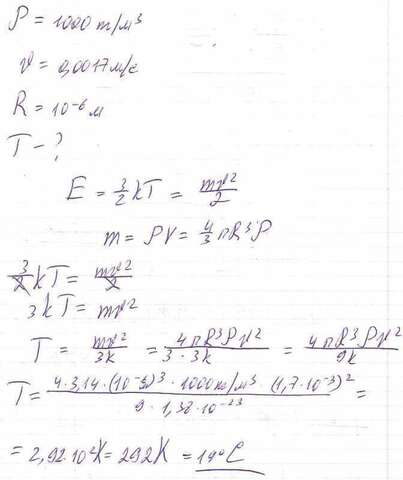 ρ = 1000 т/м³
v = 0,0017 м/с
R = 10⁻⁶ м
T - ?
E = 3/2 kT = mv²/2
m = ρV = 4/3 πR³ρ
3/2 kT = mv²/2
3kT = mv²
T = mv²/3k = 4πR³ρv²/3·3k = 4πR³ρv²/9k
T = 4·3,14·(10⁻⁶)³·1000 кг/м³·(1,7·10⁻³)²/9·1,38·10⁻²³ =
= 2,92·10²K = 292K = 19°C